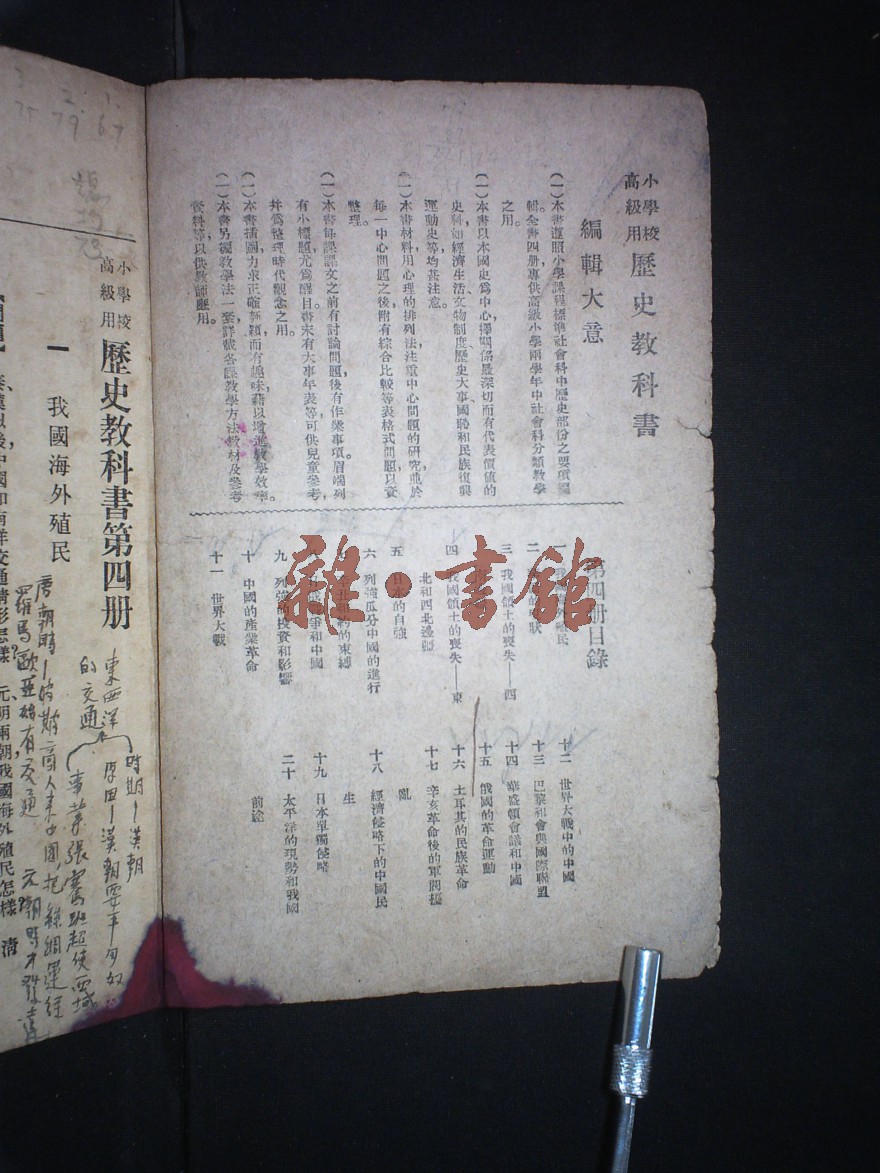 小學校
高級用
歷史教科書
編輯大意
(一)本書遵照小學課程標準社會科中歷史部份之要項編
輯。全書四册專供高級小學兩學年中社會科分類教學
之用。
(一)本書以本國史爲中心,擇關係最深切而有代表價值的
史料,如經濟生活、文物制度、歷史大事、國恥和民族復興
運動史等均甚注意。
(一)本書材料,用心理的排列法,注重中心問題的研究,並於
每一中心問題之後,附有綜合比較等表格式問題,以資
整理。
(一)本書每課課文之前有討論問題,後有作業事項,眉端列
有小標題,尤爲醒目。書末有大事年表等,可供兒童參考,
并爲整理時代觀念之用。
(一)本書插圖力求正確新穎而有趣味,藉以增進教學效率。
(一)本書另編教學法一套,詳載各課教學方法、教材及參考
資料等,以供教師應用。
第四册目錄
一 我國海外殖民
二 狀
三 我國領土的喪失——四
四 我國領土的喪失——東
北和四北邊疆
五 日本的自強
六 列強瓜分中國的進行
約的束縛
爭和中國
九 列強的投資和影響
十 中國的產業革命
十一 世界大戰
十二 世界大戰中的中國
十三 巴黎和會與國際聯盟
十四 華盛頓會議和中國
十五 俄國的革命運動
十六 土耳其的民族革命
十七 辛亥革命後的軍閥擾
亂
十八 經濟侵略下的中國民
生
十九 日本單獨侵略
二十 太平洋的現勢和我國
前途
雜·書館
小學校
高級用
歷史教科書第四册
一 我國海外殖民
秦、漢以後,中國和南洋交通情形怎樣?元、明兩朝,我國海外殖民怎樣?清
東西洋的交通
時期—漢朝
原因—漢朝要平匈奴
事業張騫班超使西域
唐朝時—波斯商人來中國把絲綢運經
羅馬歐亞始有交通
元朝時才發達